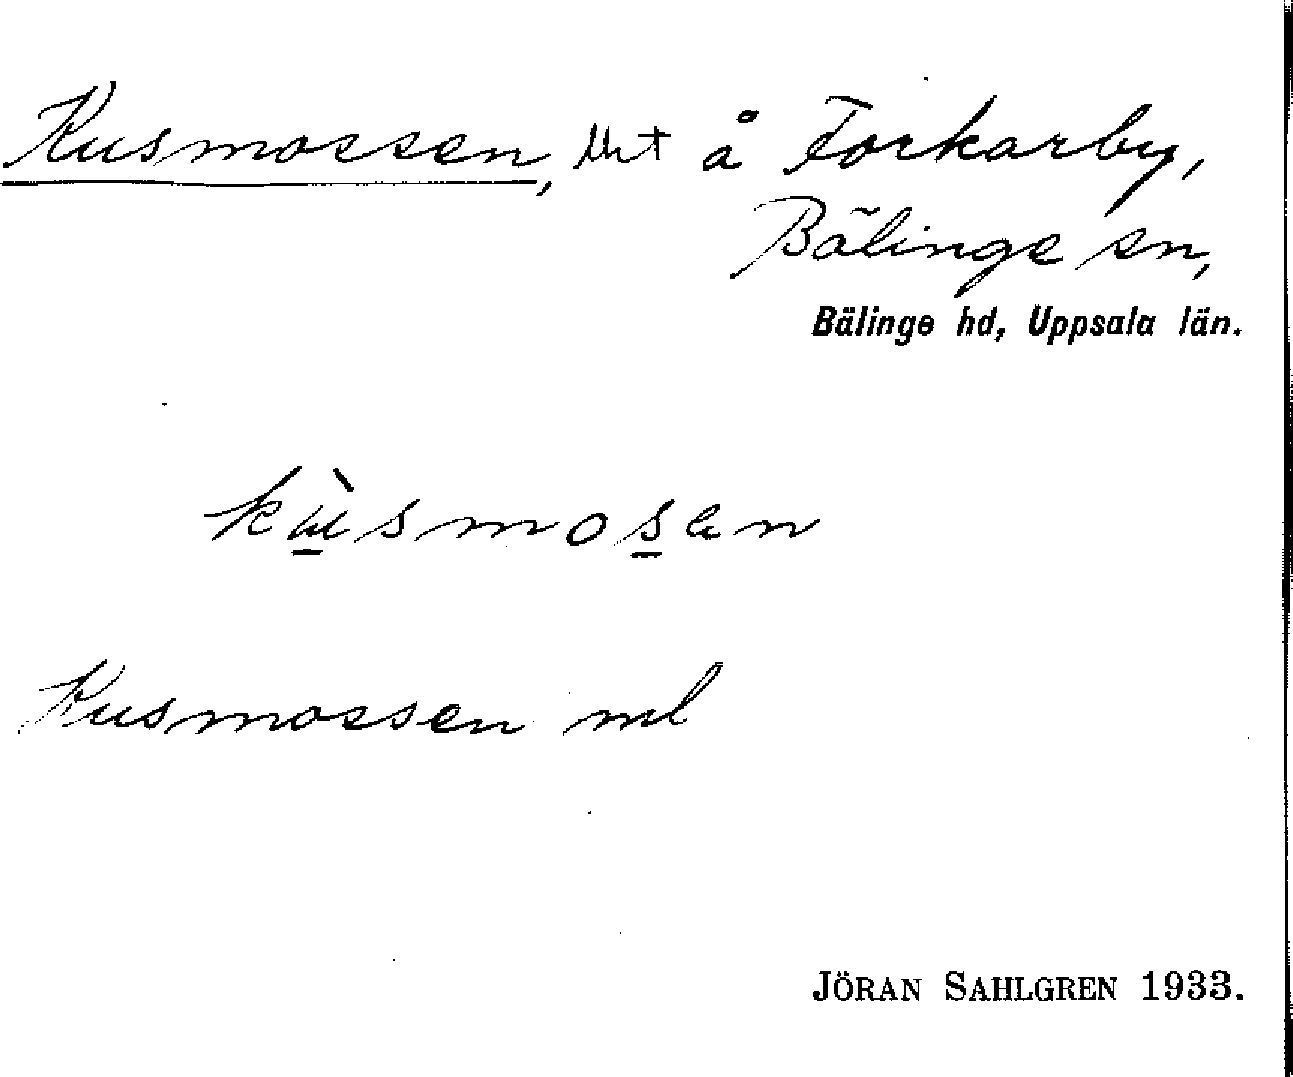 Kusmossen, Urt å Forkarby,
Bälinge sn,
Bälinge hd, Uppsala län.
kùsmosen
Kusmossen ml
JÖRAN SAHLGREN 1933.